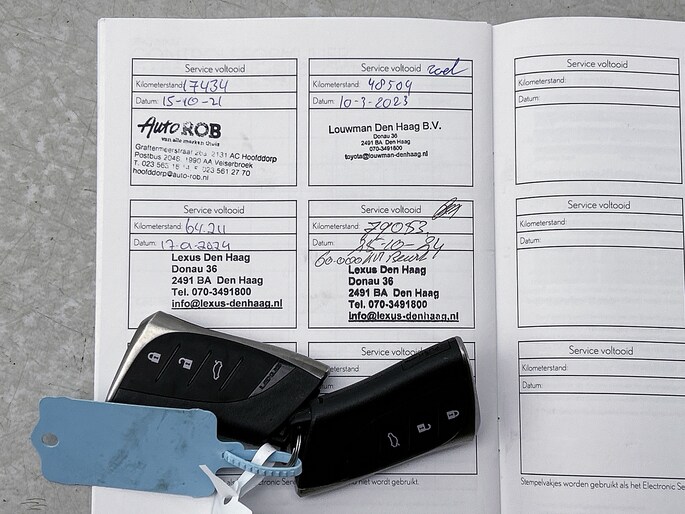 Service voltooid
Kilometerstand: 17434
Datum: 15-10-21
Auto ROB
van alle merken thuis
2131 AC Hoofddorp
Postbus 2046 1990 AA Velserbroek
T. 023 563 023 561 27 70
hoofddorp@auto-rob.nl
Service voltooid
Kilometerstand: 48504
Datum: 10-3-2023
Louwman Den Haag B.V.
Donau 36
2491 BA Den Haag
070-3491800
toyota@louwman-denhaag.nl
Service voltooid
Kilometerstand:
Datum:
Service voltooid
Kilometerstand: 64.211
Datum: 17-01-2024
Lexus Den Haag
Donau 36
2491 BA Den Haag
Tel. 070-3491800
info@lexus-denhaag.nl
Service voltooid
Kilometerstand: 79053
Datum: 25-10-24
60.000 KM Beurt
Lexus Den Haag
Donau 36
2491 BA Den Haag
Tel. 070-3491800
info@lexus-denhaag.nl
Service voltooid
Kilometerstand:
Datum:
Service voltooid
Service voltooid
Kilometerstand:
Datum:
LEXUS
niet wordt gebruikt.
Stempelvakjes worden gebruikt als het Electronic Se